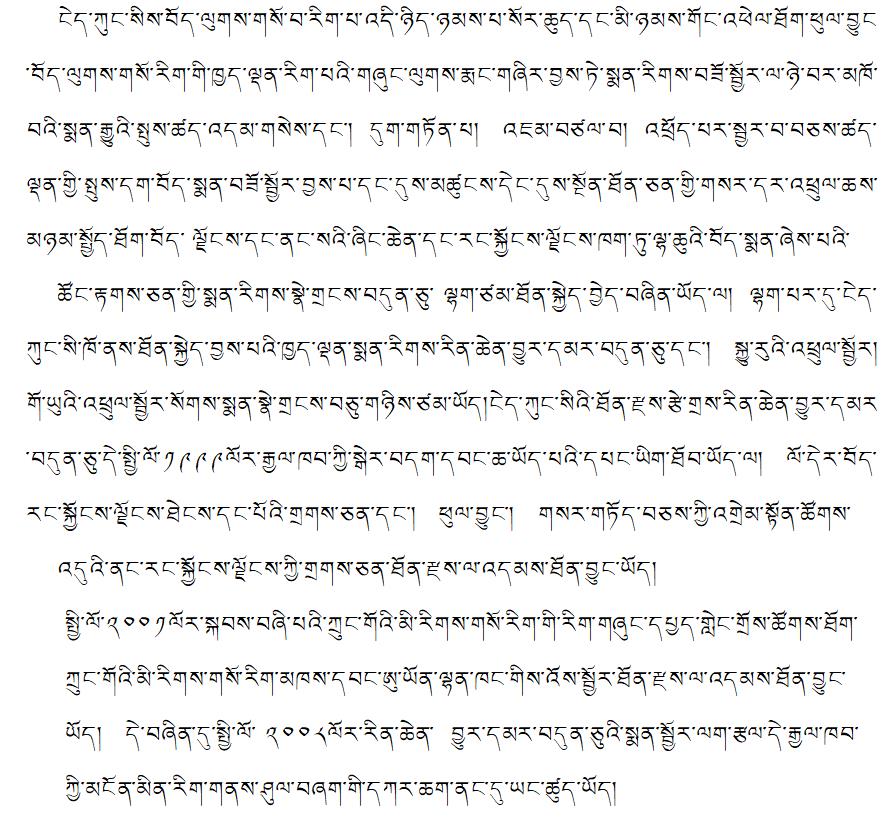 ངེད་ཀུང་སིས་བོད་ལུགས་གསོ་བ་རིག་པ་འདི་ཉིད་ཉམས་པ་སོར་ཆུད་དང་མི་ཉམས་གོང་འཕེལ་ཐོག་ཕུལ་བྱུང
་བོད་ལུགས་གསོ་རིག་གི་ཁྱད་ལྡན་རིག་པའི་གཞུང་ལུགས་རྨང་གཞིར་བྱས་ཏེ་སྨན་རིགས་བཟོ་སྦྱོར་ལ་ཉེ་བར་མཁོ་
བའི་སྨན་རྒྱུའི་སྤུས་ཚད་འདམ་གསེས་དང་། དུག་གཏོན་པ། འཇམ་བཙལ་བ། འཕྲོད་པར་སྦྱར་བ་བཅས་ཚད་
ལྡན་གྱི་སྤུས་དག་བོད་སྨན་བཟོ་སྦྱོར་བྱས་པ་དང་དུས་མཚུངས་དེང་དུས་སྔོན་ཐོན་ཅན་གྱི་གསར་དར་འཕྲུལ་ཆས་
མཉམ་སྤྱོད་ཐོག་བོད་ ལྗོངས་དང་ནང་སའི་ཞིང་ཆེན་དང་རང་སྐྱོངས་ལྗོངས་ཁག་ཏུ་ལྷ་ཆུའི་བོད་སྨན་ཞེས་པའི་
ཚོང་རྟགས་ཅན་གྱི་སྨན་རིགས་སྣེ་གྲངས་བདུན་ཅུ་ ལྷག་ཙམ་ཐོན་སྐྱེད་བྱེད་བཞིན་ཡོད་ལ། ལྷག་པར་དུ་ངེད་
ཀུང་སི་ཁོ་ནས་ཐོན་སྐྱེད་བྱས་པའི་ཁྱད་ལྡན་སྨན་རིགས་རིན་ཆེན་བྱུར་དམར་བདུན་ཅུ་དང་། སྐྱུ་རུའི་འཕྲུལ་སྦྱོར།
གོ་ཡུའི་འཕྲུལ་སྦྱོར་སོགས་སྨན་སྣེ་གྲངས་བཅུ་གཉིས་ཙམ་ཡོད།ངེད་ཀུང་སིའི་ཐོན་རྫས་རྩེ་གྲས་རིན་ཆེན་བྱུར་དམར
་བདུན་ཅུ་དེ་སྤྱི་ལོ་༡༩༩༩ལོར་རྒྱལ་ཁབ་ཀྱི་སྒེར་བདག་དབང་ཆ་ཡོད་པའི་དཔང་ཡིག་ཐོབ་ཡོད་ལ། ལོ་དེར་བོད་
རང་སྐྱོངས་ལྗོངས་ཐེངས་དང་པོའི་གྲགས་ཅན་དང་། ཕུལ་བྱུང་། གསར་གཏོད་བཅས་ཀྱི་འགྲེམ་སྟོན་ཚོགས་
འདུའི་ནང་རང་སྐྱོངས་ལྗོངས་ཀྱི་གྲགས་ཅན་ཐོན་རྫས་ལ་འདམས་ཐོན་བྱུང་ཡོད།
སྤྱི་ལོ་༢༠༠༡ལོར་སྐབས་བཞི་པའི་ཀྲུང་གོའི་མི་རིགས་གསོ་རིག་གི་རིག་གཞུང་དཔྱད་གླེང་གྲོས་ཚོགས་ཐོག་
ཀྲུང་གོའི་མི་རིགས་གསོ་རིག་མཁས་དབང་ཨུ་ཡོན་ལྷན་ཁང་གིས་འོས་སྦྱོར་ཐོན་རྫས་ལ་འདམས་ཐོན་བྱུང་
ཡོད། དེ་བཞིན་དུ་སྤྱི་ལོ་ ༢༠༠༨ལོར་རིན་ཆེན་ བྱུར་དམར་བདུན་ཅུའི་སྨན་སྦྱོར་ལག་རྩལ་དེ་རྒྱལ་ཁབ་
ཀྱི་མངོན་མིན་རིག་གནས་ཤུལ་བཞག་གི་དཀར་ཆག་ནང་དུ་ཡང་ཚུད་ཡོད།